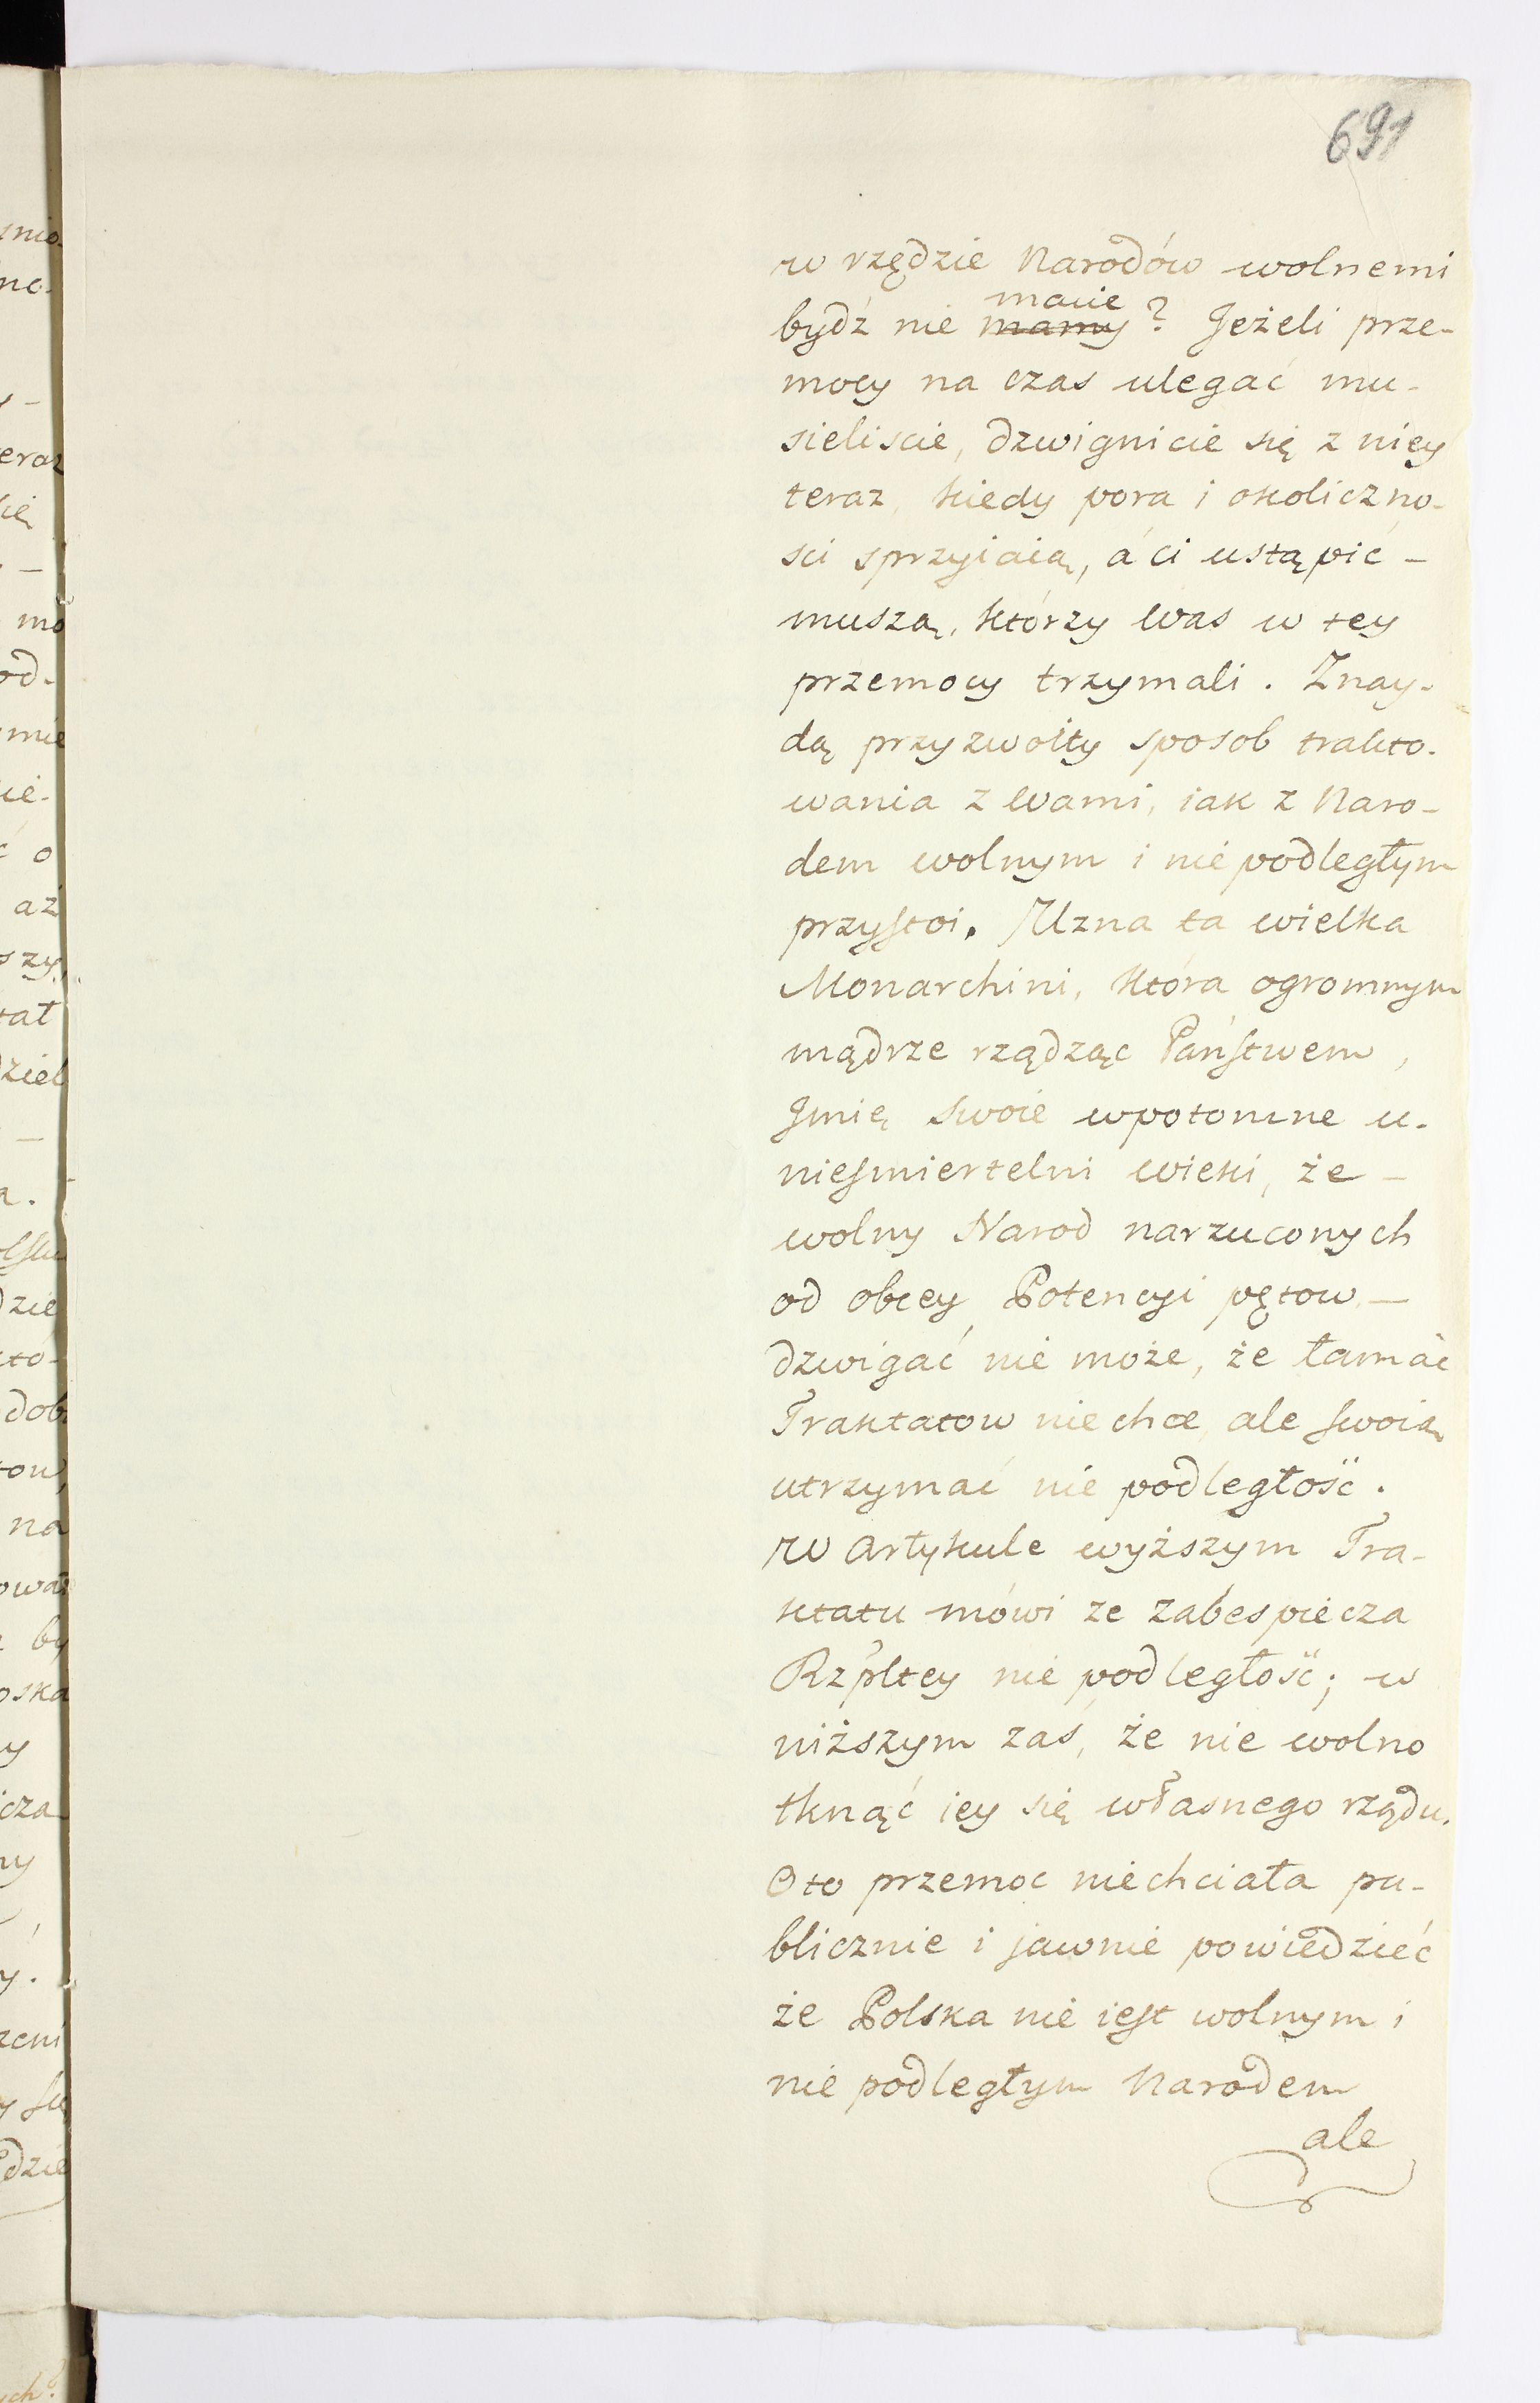 691
w rzędzie Narodów wolnemi
macie
bydź nie mamy? Jeżeli prze-
mocy na czas ulegać mu-
sieliscie, dzwignicie się z niey
teraz, kiedy pora i okoliczno-
sci sprzyiaią, á ci ustąpić -
muszą, którzy Was w tey
przemocy trzymali. Znay-
dą przyzwoity sposob trakto-
wania z Wami, iak z Naro-
dem wolnym i nie podległym
przystoi. Uzna ta wielka
Monarchini, która ogromnym
mądrze rządząc Państwem,
Jmię swoie wpotomne u-
niesmiertelni wieki, że -
wolny Narod narzuconych
od obcey Potencyi pętow -
dzwigać nie może, że łamać
Traktatow niechce, ale swoią
utrzymać nie podległość.
W Artykule wyższym Tra-
ktatu mówi ze zabespiecza
Rzpltey nie podległość; w
niższym zaś, że nie wolno
tknąć iey się własnego rządu.
Oto przemoc niechciała pu-
blicznie i jawnie powiedzieć
że Polska nie iest wolnym i
nie podległym Narodem
ale